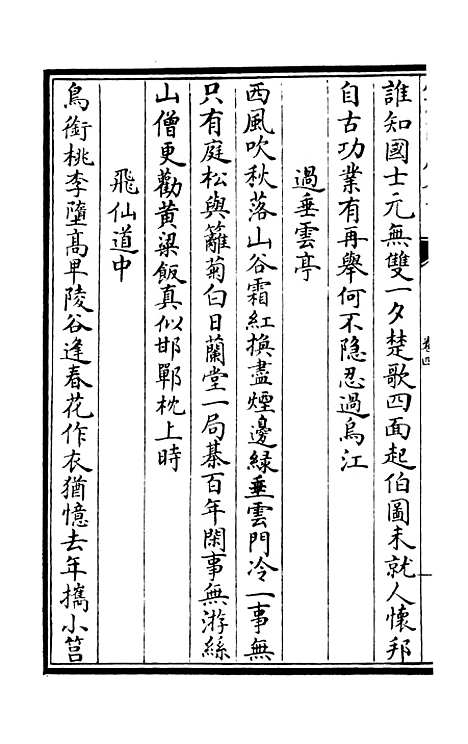 誰知國士元無雙一夕楚歌四面起伯圖未就人懷邦
自古功業有再舉何不隐忍過烏江
過垂雲亭
西風吹秋落山谷霜紅換盡煙邊緑垂雲門冷一事無
只有庭松與籬菊白日蘭堂一局棊百年閑事無游絲
山僧更勸黄粱飯真似邯鄲枕上時
飛仙道中
鳥銜桃李墮高卑陵谷逢春花作衣猶憶去年攜小筥
卷四